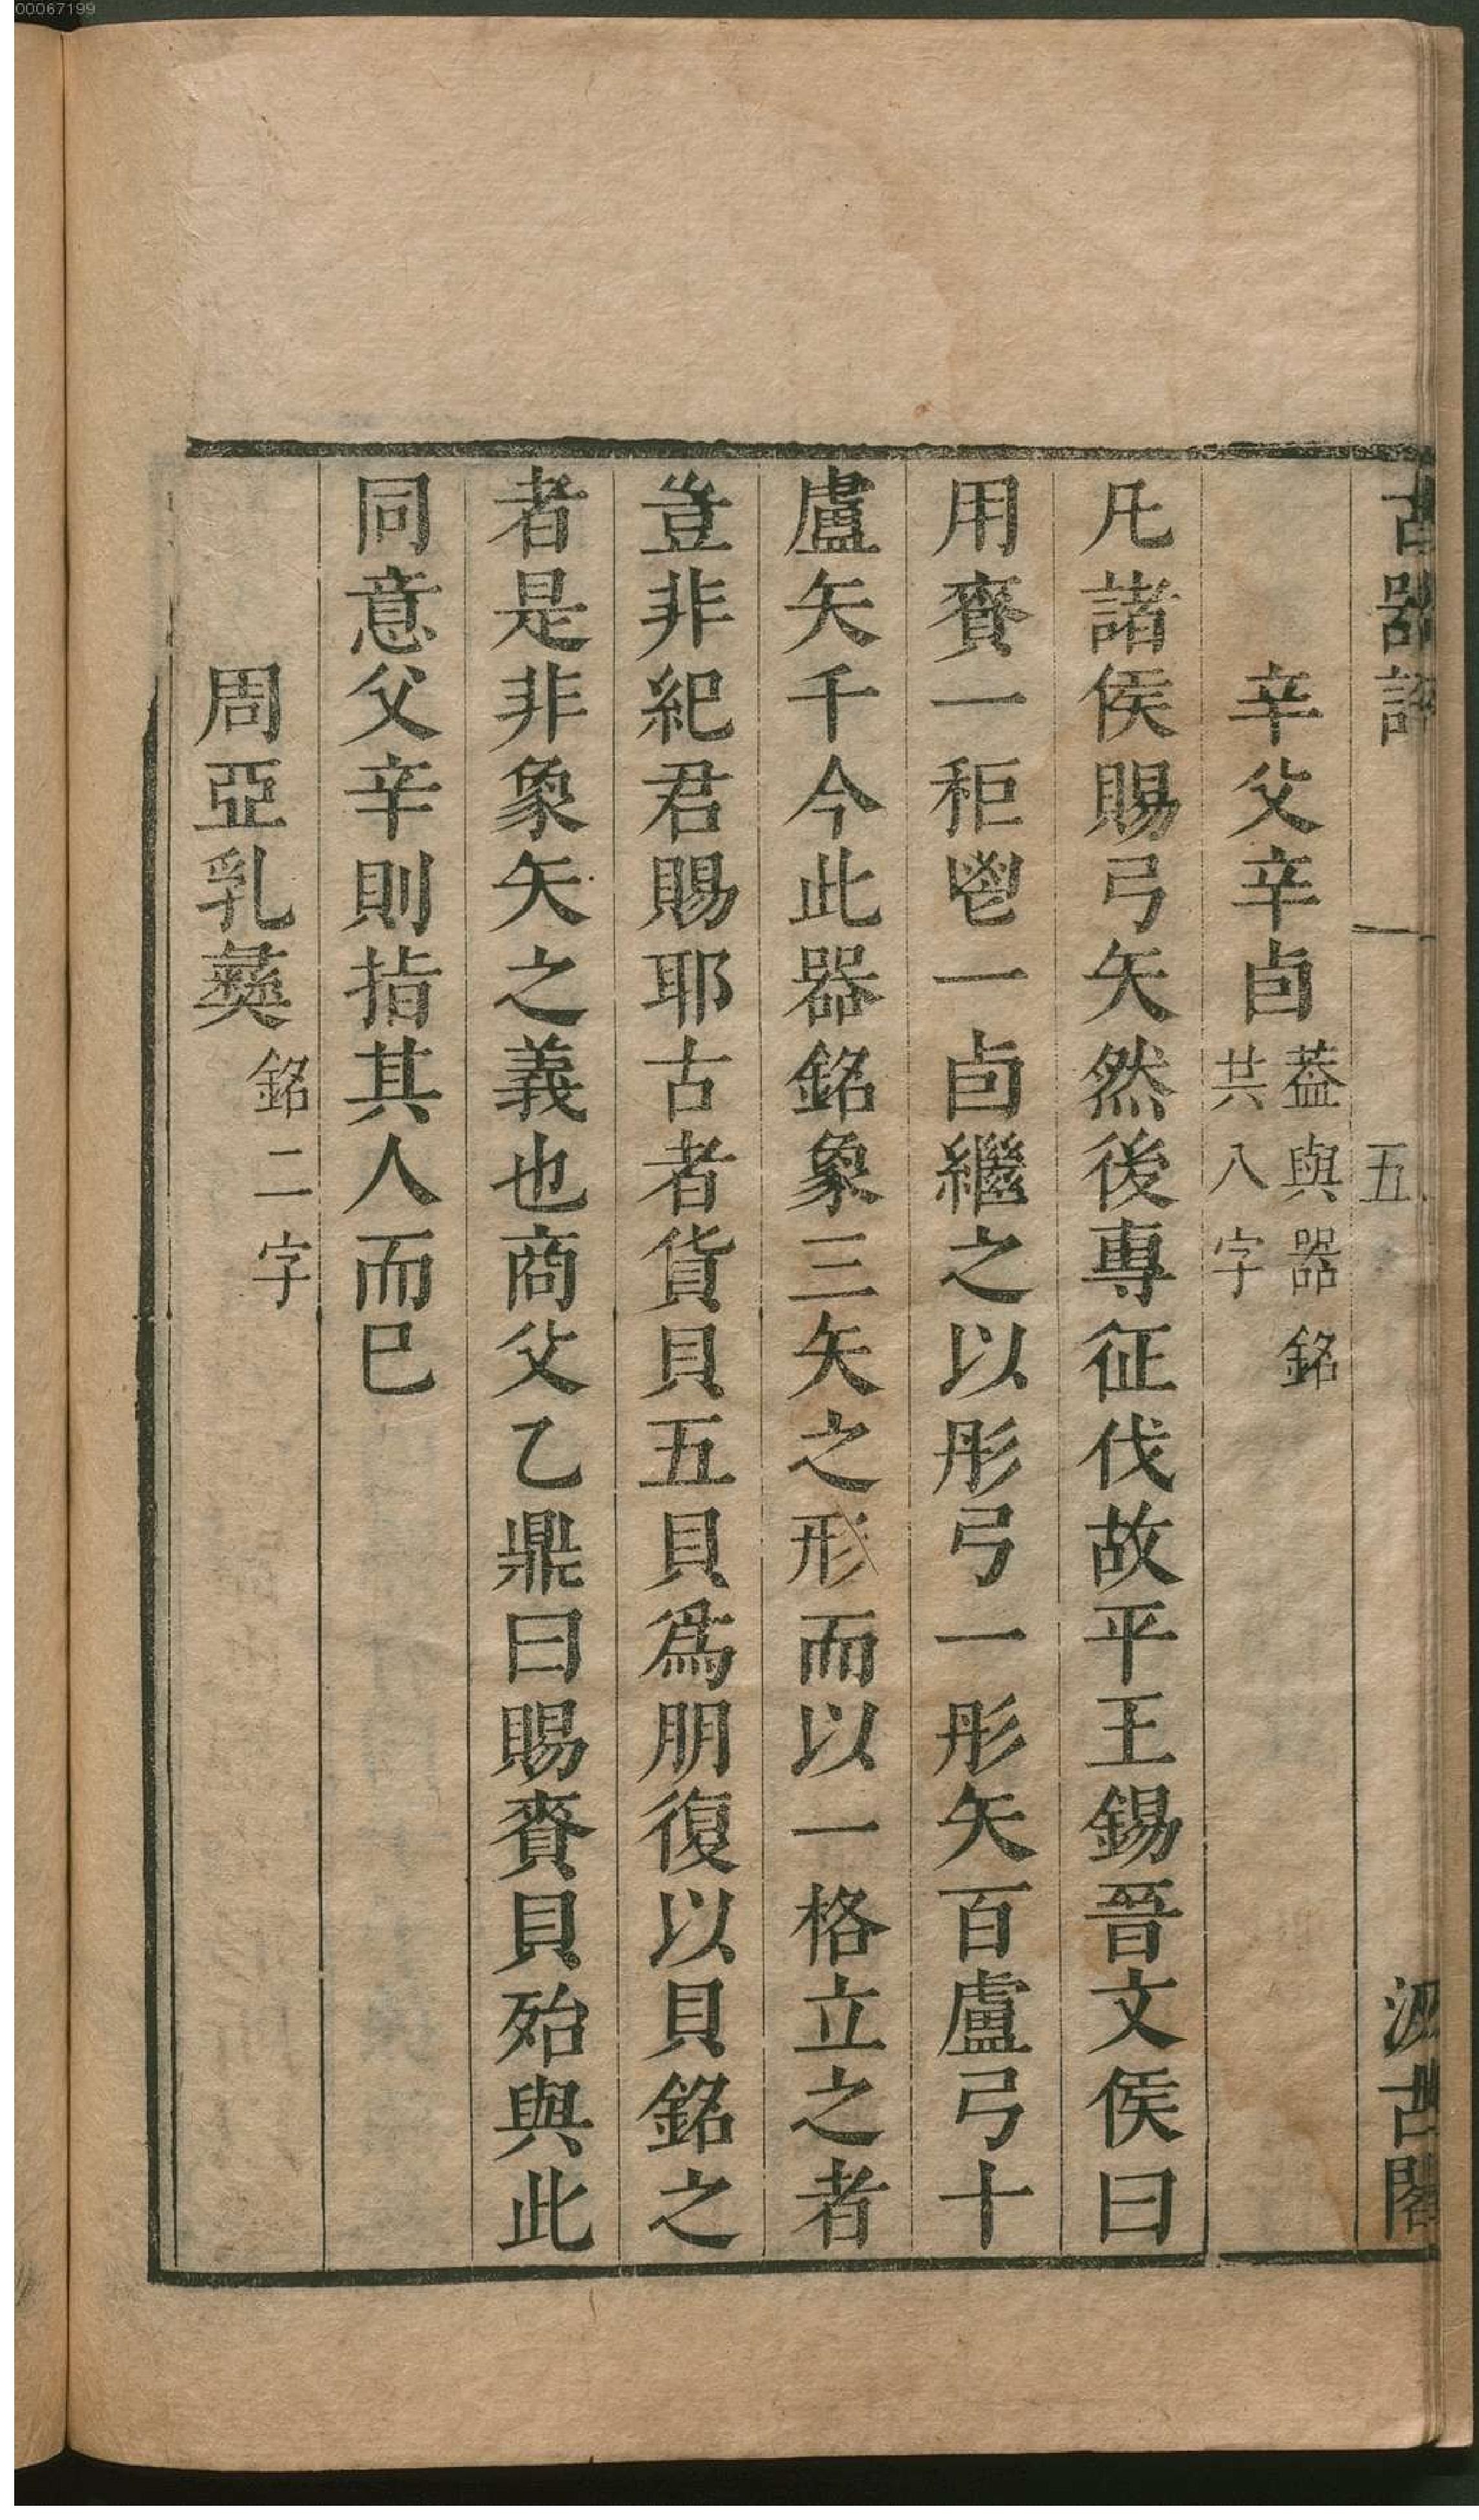 00067199
古器評
五
汲古閣
辛父辛卣
蓋與器銘
共八字
凡諸侯賜弓矢然後專征伐故平王錫晉文侯曰
用賚一秬鬯一卣繼之以彤弓一彤矢百盧弓十
盧矢千今此器銘象三矢之形而以一格立之者
豈非紀君賜耶古者貨貝五貝爲朋復以貝銘之
者是非象矢之義也商父乙鼎曰賜賚貝殆與此
同意父辛則指其人而已
周亞乳彝
銘二字